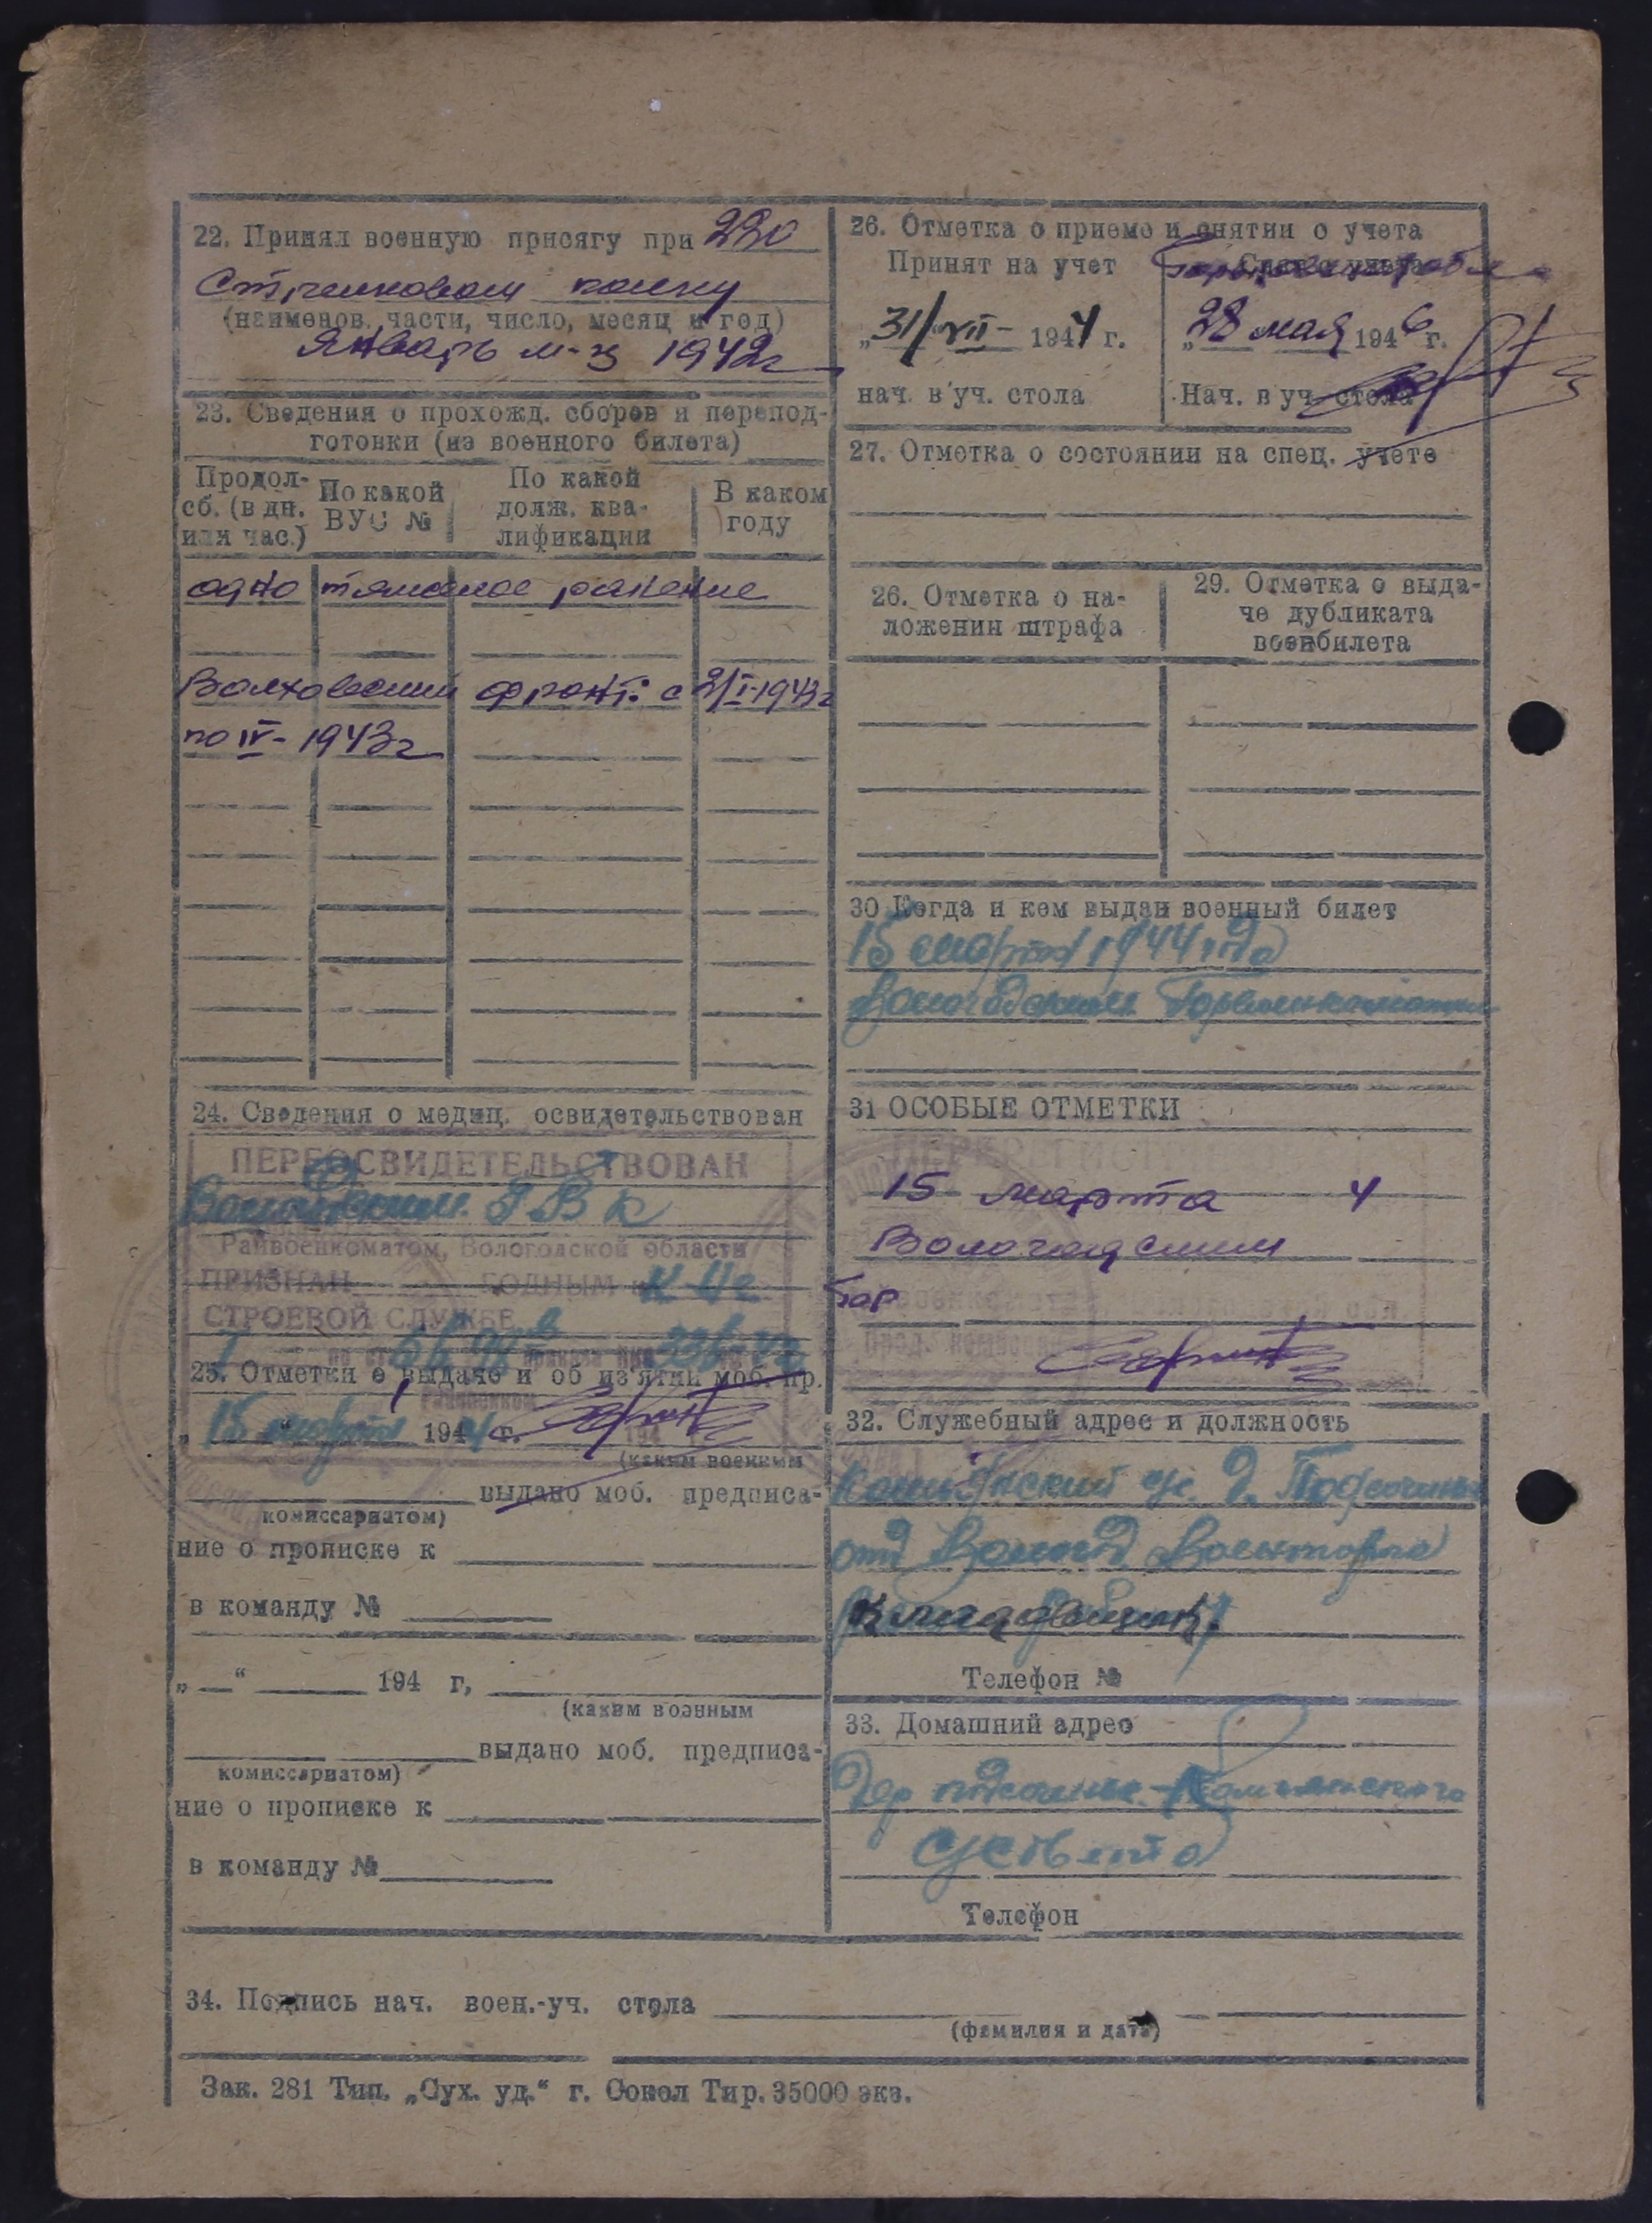 22. Принял военную присягу при 230
Стрелковом полку
(наименов. части, число, месяц и год)
Январь м-ц 1942г
23. Сведения о прохожд. сборов и перепод-
готовки (из военного билета)
Продол- По какой По какой В каком
сб. (в дн. ВУС № долж. ква- году
или час.) лификации
одно тяжелое ранение
Волховский фронт: с 2/I-1943г
по IV-1943г
24. Сведения о медиц. освидетельствован
ПЕРЕОСВИДЕТЕЛЬСТВОВАН
Вологодским ГВК
Райвоенкоматом, Вологодской области
ПРИЗНАН ГОДНЫМ к
СТРОЕВОЙ СЛУЖБЕ
25. Отметки о выдаче и об из'ятии моб. пр.
15 марта 1944 г.
(каким военным
выдано моб. предписа-
комиссариатом)
ние о прописке к
в команду №
„ “ 194 г,
(каким военным
выдано моб. предписа-
комиссариатом)
ние о прописке к
в команду №
26. Отметка о приеме и снятии с учета
Принят на учет Снят с учета
„31/VII- 1944 г. „28 мая 1946 г.
нач. в уч. стола Нач. в уч. стола
27. Отметка о состоянии на спец. учете
26. Отметка о на- 29. Отметка о выда-
ложении штрафа че дубликата
военбилета
30 Когда и кем выдан военный билет
15 марта 1944 года
Вологодским Горвоенкоматом
31 ОСОБЫЕ ОТМЕТКИ
15 марта 4
Вологодским
Гор
32. Служебный адрес и должность
отд Военторга
Кладовщик.
Телефон №
33. Домашний адрес
Дер
с/совета
Телефон
34. Подпись нач. воен.-уч. стола
(фамилия и дата)
Зак. 281 Тип. „Сух. уд.“ г. Сокол Тир. 35000 экз.